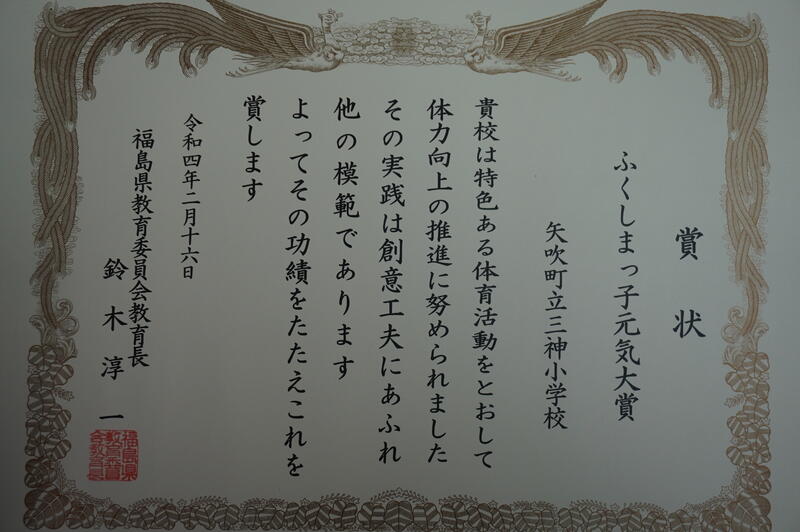 賞状
ふくしまっ子元気大賞
矢吹町立三神小学校
貴校は特色ある体育活動をとおして
体力向上の推進に努められました
その実践は創意工夫にあふれ
他の模範であります
よってその功績をたたえこれを
賞します
令和四年二月十六日
福島県教育委員会教育長
鈴木淳一
福島県
教育委員
会教育長